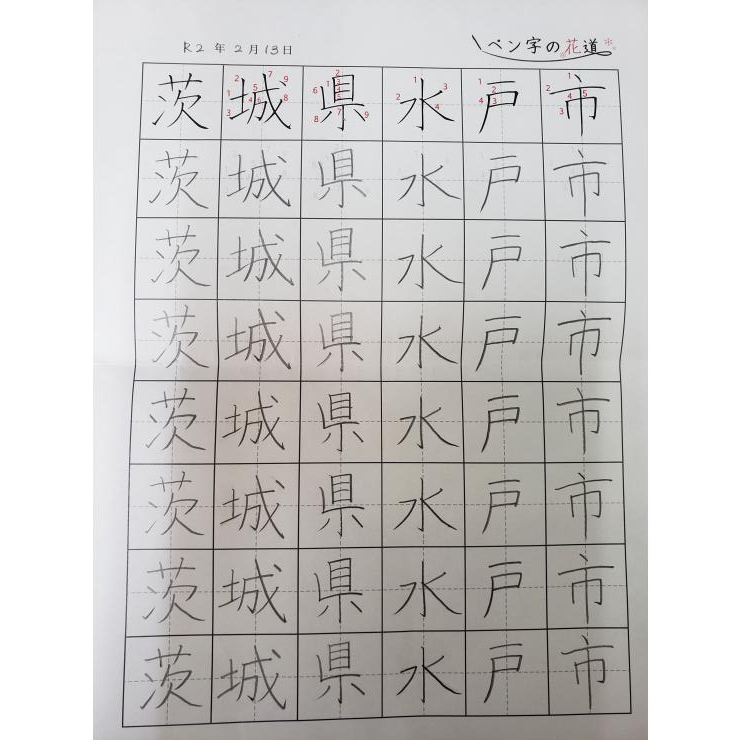 R2年2月13日 ペン字の花道
茨城県水戸市
茨城県水戸市
茨城県水戸市
茨城県水戸市
茨城県水戸市
茨城県水戸市
茨城県水戸市
茨城県水戸市